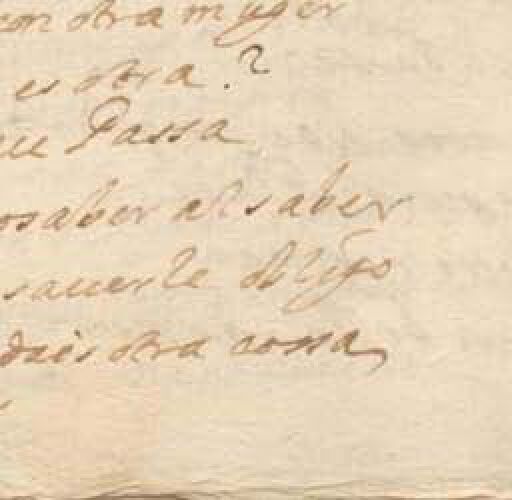 con otra muger
es otra?
ue Passa
osaber al saber
sauerle obligo
dais otra cossa